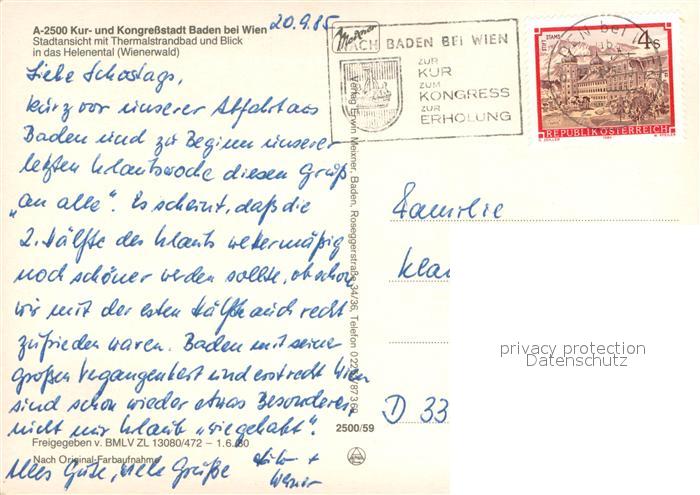 A-2500 Kur- und Kongreßstadt Baden bei Wien
Stadtansicht mit Thermalstrandbad und Blick
in das Helenental (Wienerwald)
20.9.85
Liebe Schostags,
kurz vor unserer Abfahrt aus
Baden und zu Beginn unserer
letzten Urlaubswoche diesen Gruß
„an alle". Es scheint, daß die
2. Hälfte des Urlaubs wettermäßig
noch schöner werden sollte, obschon
wir mit der ersten Hälfte auch recht
zufrieden waren. Baden mit seiner
großen Vergangenheit und erst recht Wien
sind schon wieder etwas Besonderes,
nicht nur Urlaub „wie gehabt".
Freigegeben v. BMLV ZL 13080/472 – 1.6.80
Nach Original-Farbaufnahme
Alles Gute, viele Grüße
+
Werner
2500/59
Verlag Erwin Meixner, Baden, Roseggerstraße 34/36, Telefon 0 22 52/87 3 60
Meixner
NACH BADEN BEI WIEN
ZUR
KUR
ZUM
KONGRESS
ZUR
ERHOLUNG
STIFT STAMS
4 S
REPUBLIK ÖSTERREICH
Familie
Kla
D 33
privacy protection
Datenschutz